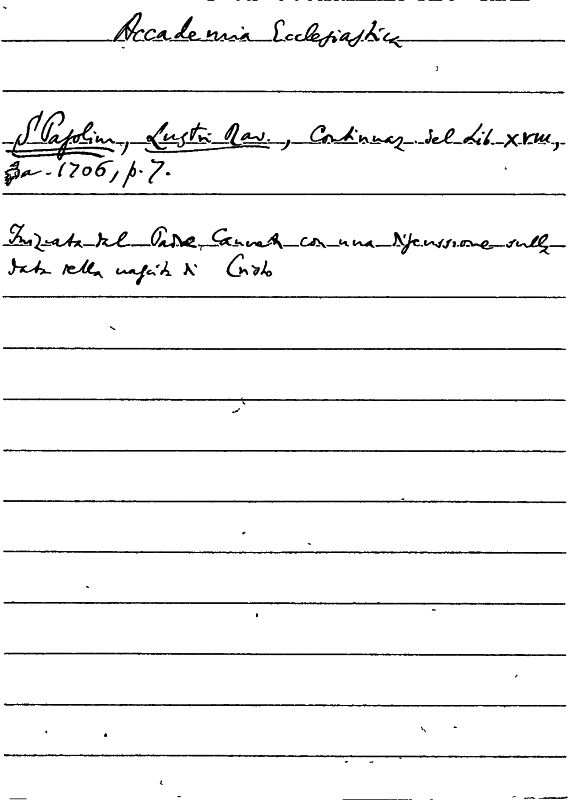 Accademia Ecclesiastica
S. Pasolini, Lustri Rav., Continuaz. del Lib. XVIII,
a. 1706, p. 7.
Iniziata dal Padre Canneti con una discussione sulla
data della nascita di Cristo